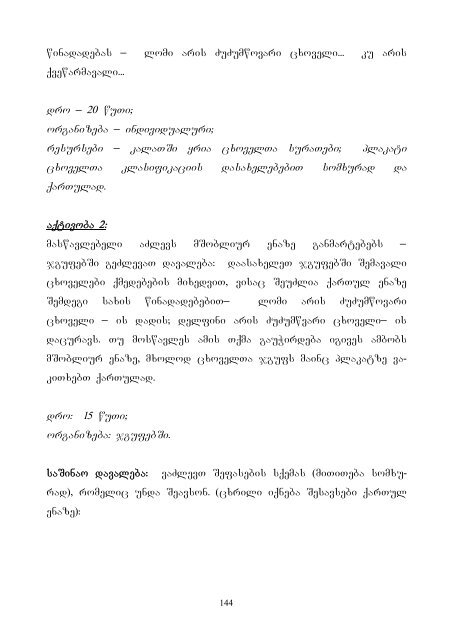 წინადადებას – ლომი არის ძუძუმწოვარი ცხოველი... კუ არის
ქვეწარმავალი...
დრო – 20 წუთი;
ორგანიზება – ინდივიდუალური;
რესურსები – კალათში ყრია ცხოველთა სურათები; პლაკატი
ცხოველთა კლასიფიკაციის დასახელებებით სომხურად და
ქართულად.
აქტივობა 2:
მასწავლებელი აძლევს მშობლიურ ენაზე განმარტებებს –
ჯგუფებში გეძლევათ დავალება: დაასახელეთ ჯგუფებში შემავალი
ცხოველები ქმედებების მიხედვით, ვისაც შეუძლია ქართულ ენაზე
შემდეგი სახის წინადადებებით– ლომი არის ძუძუმწოვარი
ცხოველი – ის დადის; დელფინი არის ძუძუმწვარი ცხოველი– ის
დაცურავს. თუ მოსწავლეს ამის თქმა გაუჭირდება იგივეს ამბობს
მშობლიურ ენაზე, მხოლოდ ცხოველთა ჯგუფს მაინც პლაკატზე ვა-
კითხებთ ქართულად.
დრო: 15 წუთი;
ორგანიზება: ჯგუფებში.
საშინაო დავალება: ვაძლევთ შეფასების სქემას (მითითება სომხუ-
რად), რომელიც უნდა შეავსონ. (ცხრილი იქნება შესავსები ქართულ
ენაზე):
144